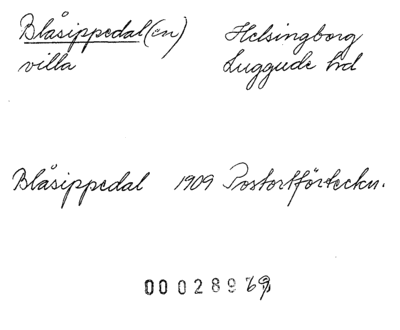 Blåsippedal(en) Helsingborg
villa Luggude hd
Blåsippedal 1909 Postortförteckn.
00028969